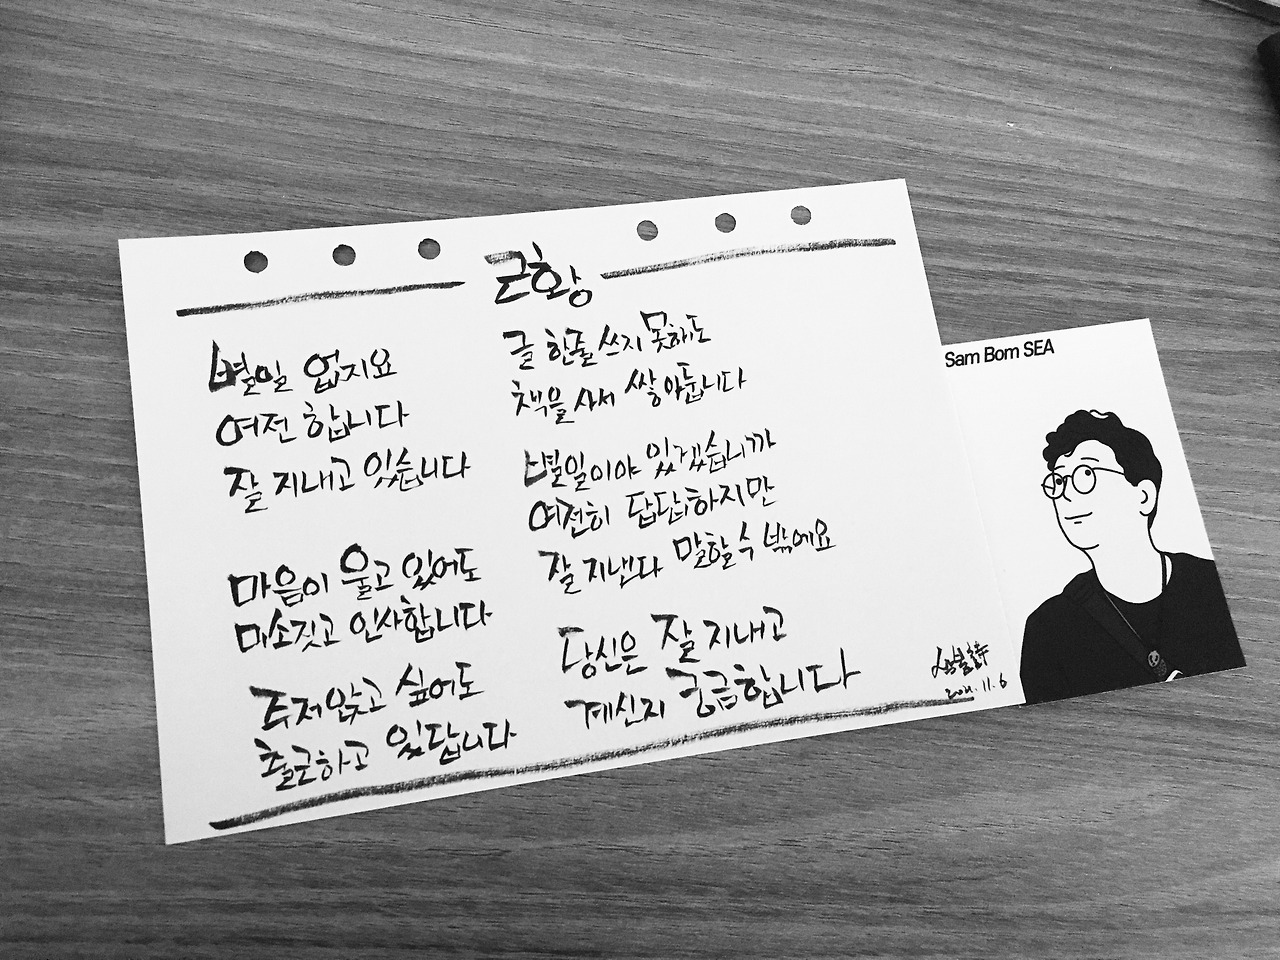 근황
별일 없지요
여전 합니다
잘 지내고 있습니다
마음이 울고 있어도
미소짓고 인사합니다
주저앉고 싶어도
출근하고 있답니다
글 한줄 쓰지 못해도
책을 사서 쌓아둡니다
별일이야 있겠습니까
여전히 답답하지만
잘 지낸다 말할 수 밖에요
당신은 잘 지내고
계신지 궁금합니다
2021. 11. 6
Sam Bom SEA